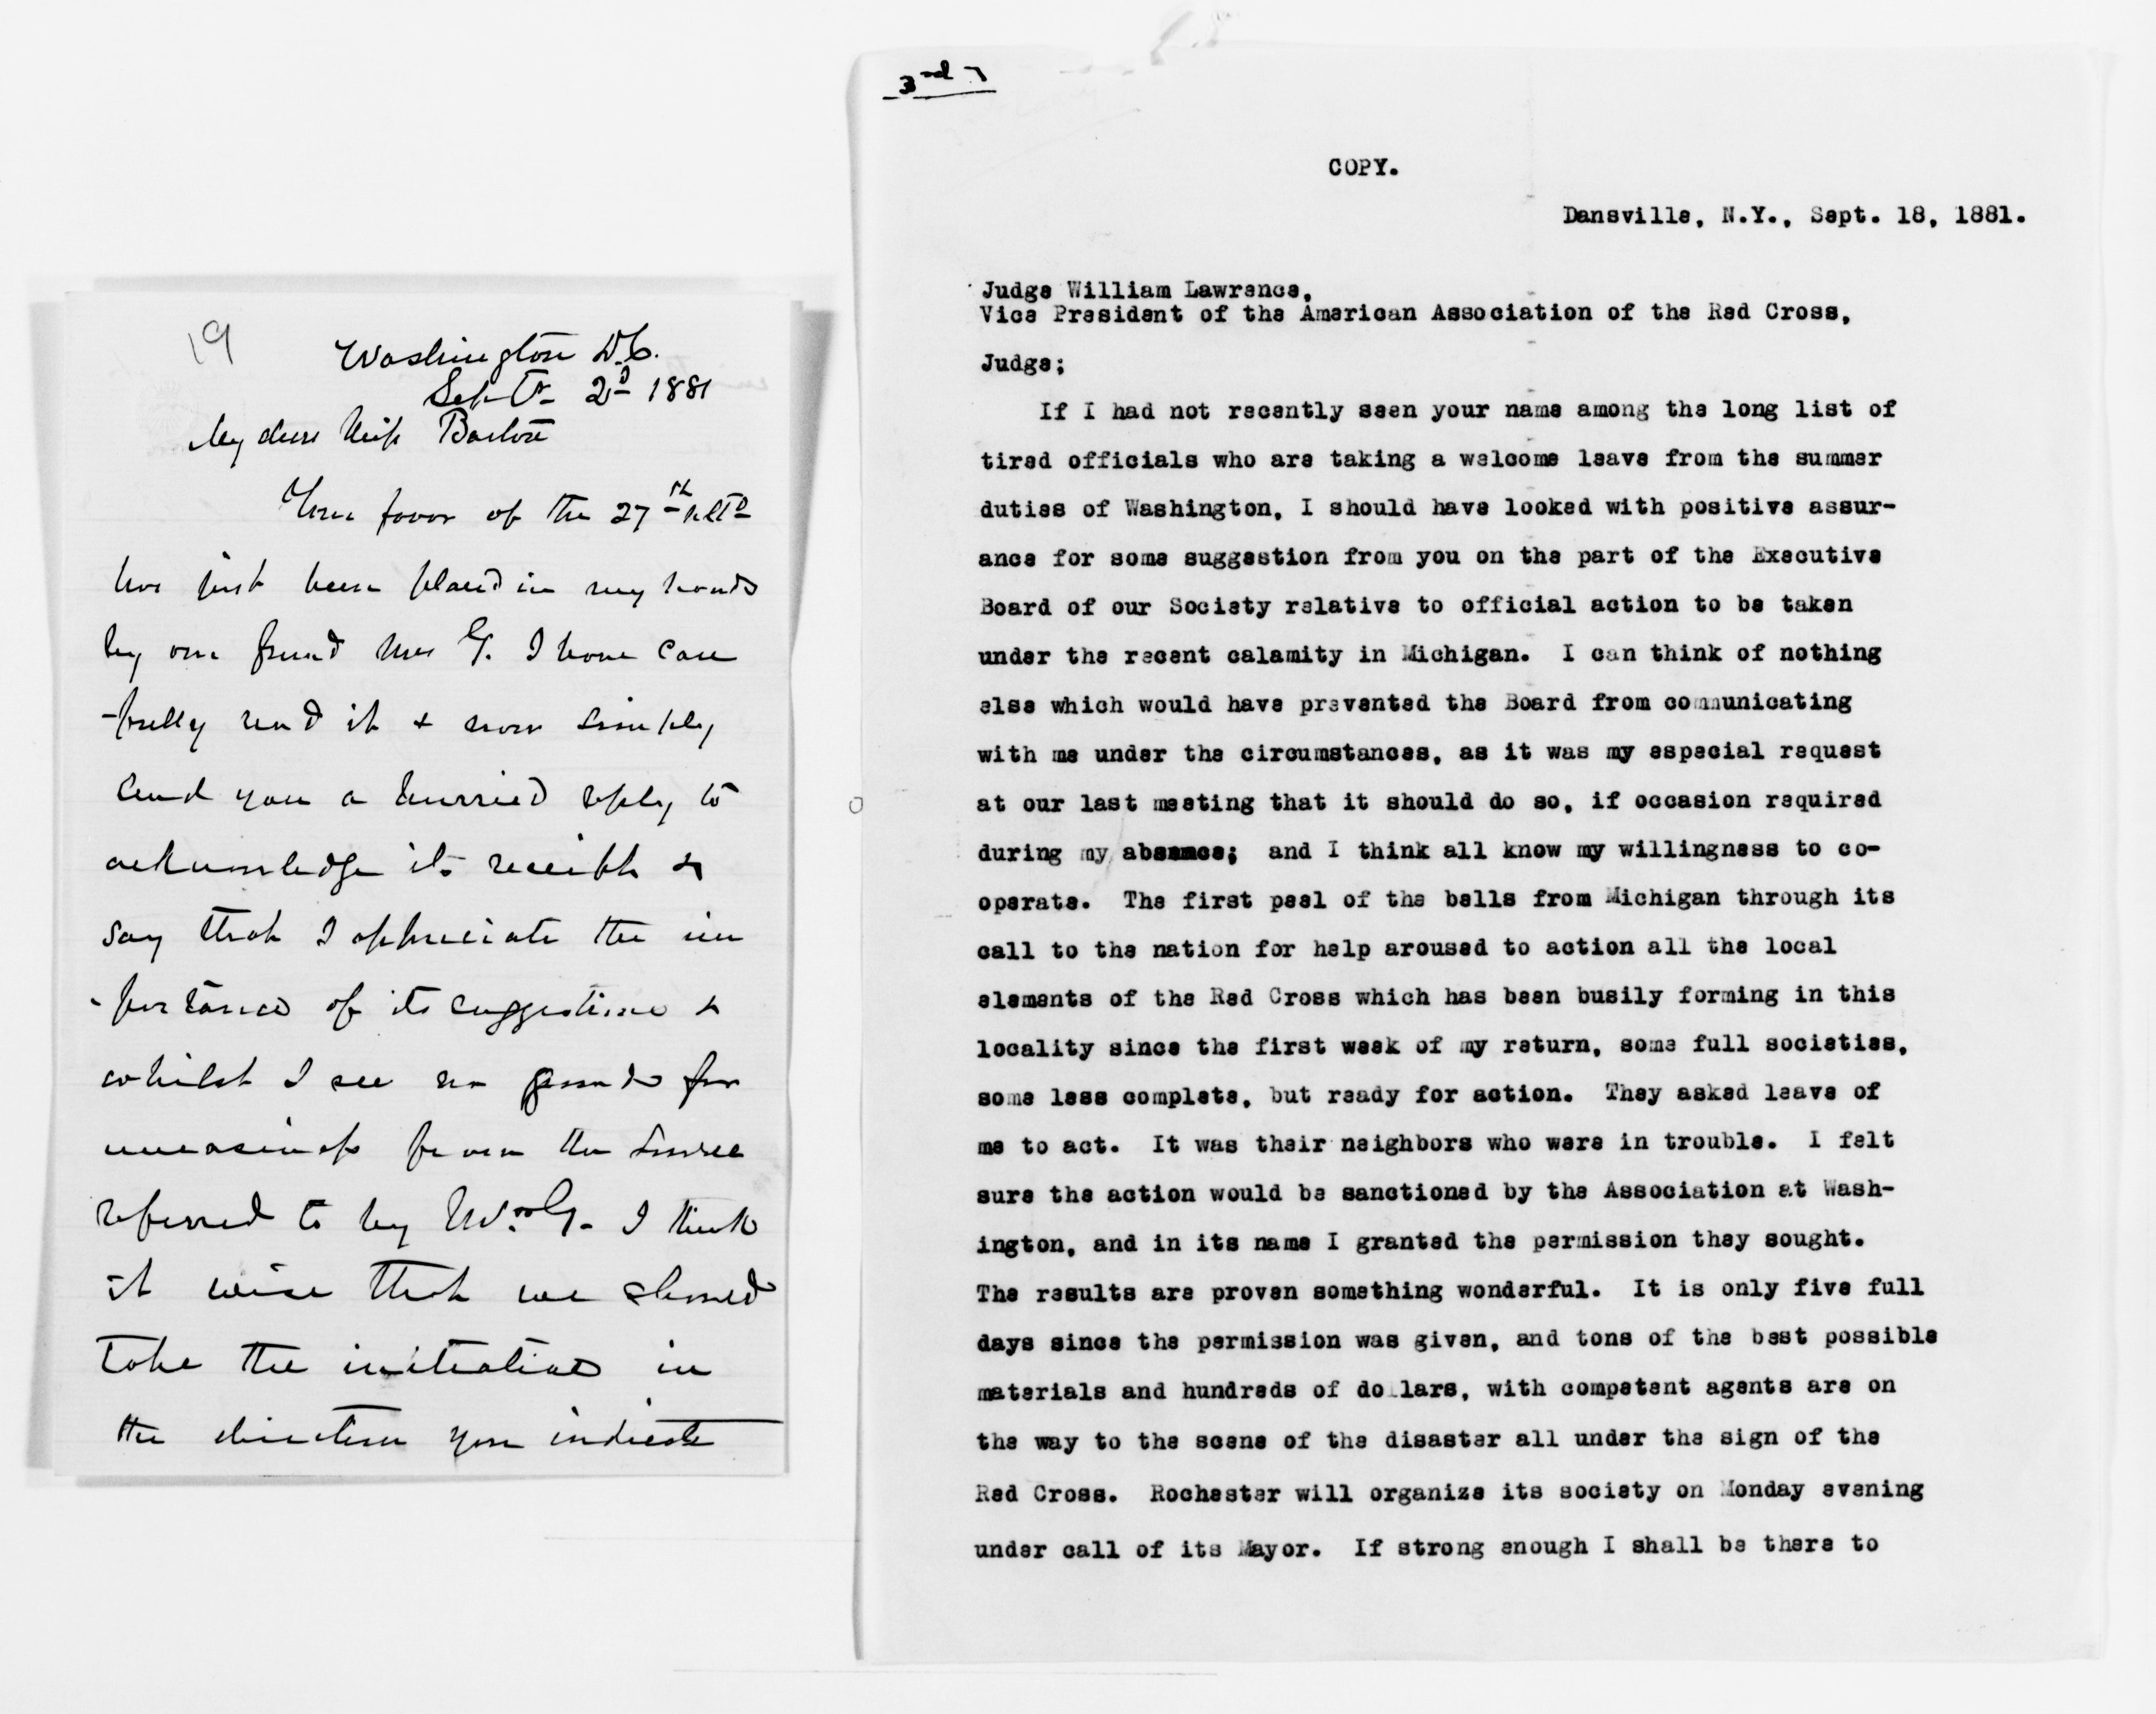 19
Washington D.C.
Sept 2d 1881
My dear Miss Barton
Your favor of the 27th ult
has just been placed in my hands
by our friend Mrs G. I have care
-fully read it & now simply
send you a hurried reply to
acknowledge its receipt &
say that I appreciate the im
-portance of its suggestions &
whilst I see no grounds for
uneasiness from the source
referred to by I think
it wise that we should
take the initiative in
the direction you indicate
3rd
COPY.
Dansville, N.Y., Sept. 18, 1881.
Judge William Lawrence,
Vice President of the American Association of the Red Cross,
Judge;
If I had not recently seen your name among the long list of
tired officials who are taking a welcome leave from the summer
duties of Washington, I should have looked with positive assur-
ance for some suggestion from you on the part of the Executive
Board of our Society relative to official action to be taken
under the recent calamity in Michigan. I can think of nothing
else which would have prevented the Board from communicating
with me under the circumstances, as it was my especial request
at our last meeting that it should do so, if occasion required
during my absence; and I think all know my willingness to co-
operate. The first peal of the bells from Michigan through its
call to the nation for help aroused to action all the local
elements of the Red Cross which has been busily forming in this
locality since the first week of my return, some full societies,
some less complete, but ready for action. They asked leave of
me to act. It was their neighbors who were in trouble. I felt
sure the action would be sanctioned by the Association at Wash-
ington, and in its name I granted the permission they sought.
The results are proven something wonderful. It is only five full
days since the permission was given, and tons of the best possible
materials and hundreds of dollars, with competent agents are on
the way to the scene of the disaster all under the sign of the
Red Cross. Rochester will organize its society on Monday evening
under call of its Mayor. If strong enough I shall be there to